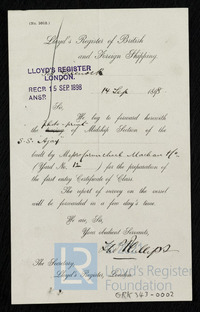 (No. 560A.)
Lloyd's Register of British
and Foreign Shipping,
Greenock
LLOYD'S REGISTER
LONDON.
RECD 15 SEP. 1898
ANSD
14 Sep 1898
Sir,
We beg to forward herewith
the photo-print of Midship Section of the
S.S. Ajax
built by Messrs
(Yard No. 12) for the preparation of
the first entry Certificate of Class.
The report of survey on the vessel
will be forwarded in a few day's time.
We are, Sir,
Your obedient Servants,
The Secretary,
Lloyd's Register, London.
Lloyd's Register
Foundation
GRK 347-0002